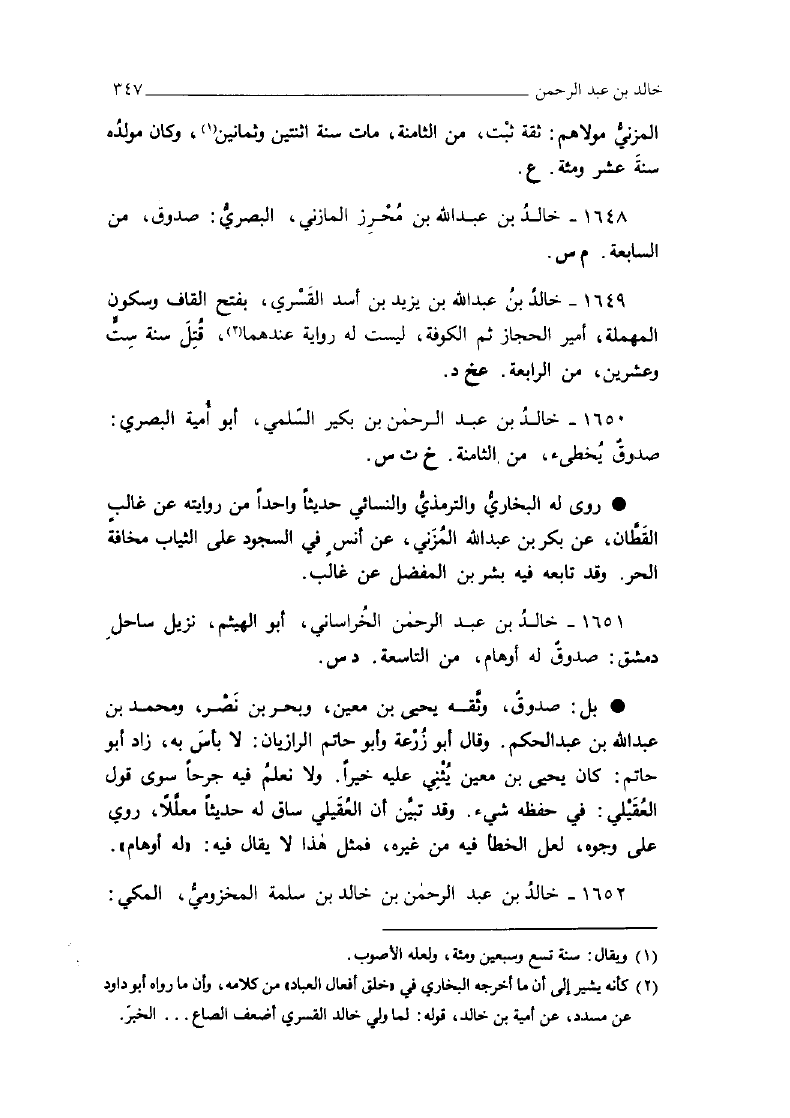 خالد بن عبد الرحمن ٣٤٧
المزنيُّ مولاهم: ثقة ثبْت، من الثامنة، مات سنة اثنتين وثمانين(١)، وكان مولدُه
سنةَ عشر ومئة. ع.
١٦٤٨ - خالدُ بن عبدالله بن مُحْرِز المازني، البصريُّ: صدوق، من
السابعة. م س.
١٦٤٩ - خالدُ بنُ عبدالله بن يزيد بن أسد القَسْري، بفتح القاف وسكون
المهملة، أمير الحجاز ثم الكوفة، ليست له رواية عندهما(٢)، قُتِلَ سنة ستٍّ
وعشرين، من الرابعة. عخ د.
١٦٥٠ - خالدُ بن عبد الرحمٰن بن بكير السّلمي، أبو أُمية البصري:
صدوقٌ يُخطىء، من الثامنة. خ ت س.
● روى له البخاريُّ والترمذيُّ والنسائي حديثاً واحداً من روايته عن غالبٍ
القَطَّان، عن بكر بن عبدالله المُزَني، عن أنسٍ في السجود على الثياب مخافة
الحر. وقد تابعه فيه بشر بن المفضل عن غالب.
١٦٥١ - خالدُ بن عبد الرحمٰن الخُراساني، أبو الهيثم، نزيل ساحلِ
دمشق: صدوقٌ له أوهام، من التاسعة. د س.
● بل: صدوقٌ، وثَّقه يحيى بن معين، وبحر بن نَصْر، ومحمد بن
عبدالله بن عبدالحكم. وقال أبو زُرْعة وأبو حاتم الرازيان: لا بأسَ به، زاد أبو
حاتم: كان يحيى بن معين يُثْنِي عليه خيراً. ولا نعلمُ فيه جرحاً سوى قول
العُقَيْلي: في حفظه شيء. وقد تبيَّن أن العُقَيلي ساق له حديثاً معلَّلاً، روي
على وجوه، لعل الخطأ فيه من غيره، فمثل هٰذا لا يقال فيه: «له أوهام».
١٦٥٢ - خالدُ بن عبد الرحمٰن بن خالد بن سلمة المخزوميُّ، المكي:
(١) ويقال: سنة تسع وسبعين ومئة، ولعله الأصوب.
(٢) كأنه يشير إلى أن ما أخرجه البخاري في «خلق أفعال العباد» من كلامه، وأن ما رواه أبو داود
عن مسدد، عن أمية بن خالد، قوله: لما ولي خالد القسري أضعف الصاع... الخبرّ.